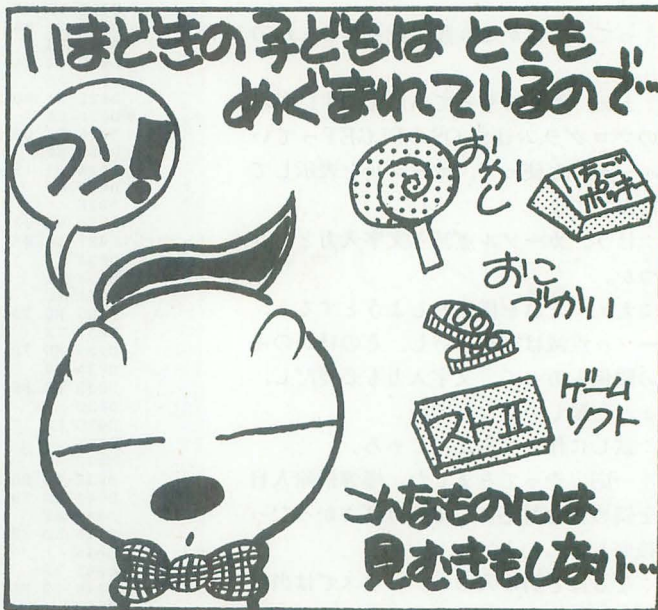 いまどきの子どもは とても
めぐまれているので…
フン!
おかし
いちご
ポッキー
おこ
づかい
100
ストII
ゲーム
ソフト
こんなものには
見むきもしない…